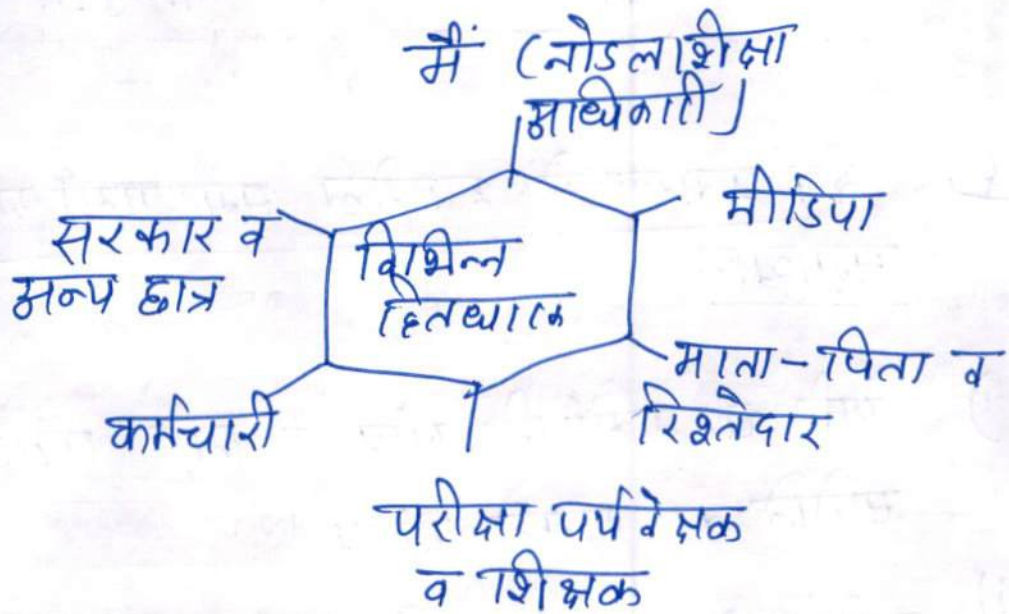 मैं (नोडल शिक्षा
अधिकारी)
मीडिया
सरकार व
अन्य छात्र
विभिन्न
हितधारक
माता-पिता व
रिश्तेदार
कर्मचारी
परीक्षा पर्यवेक्षक
व शिक्षक